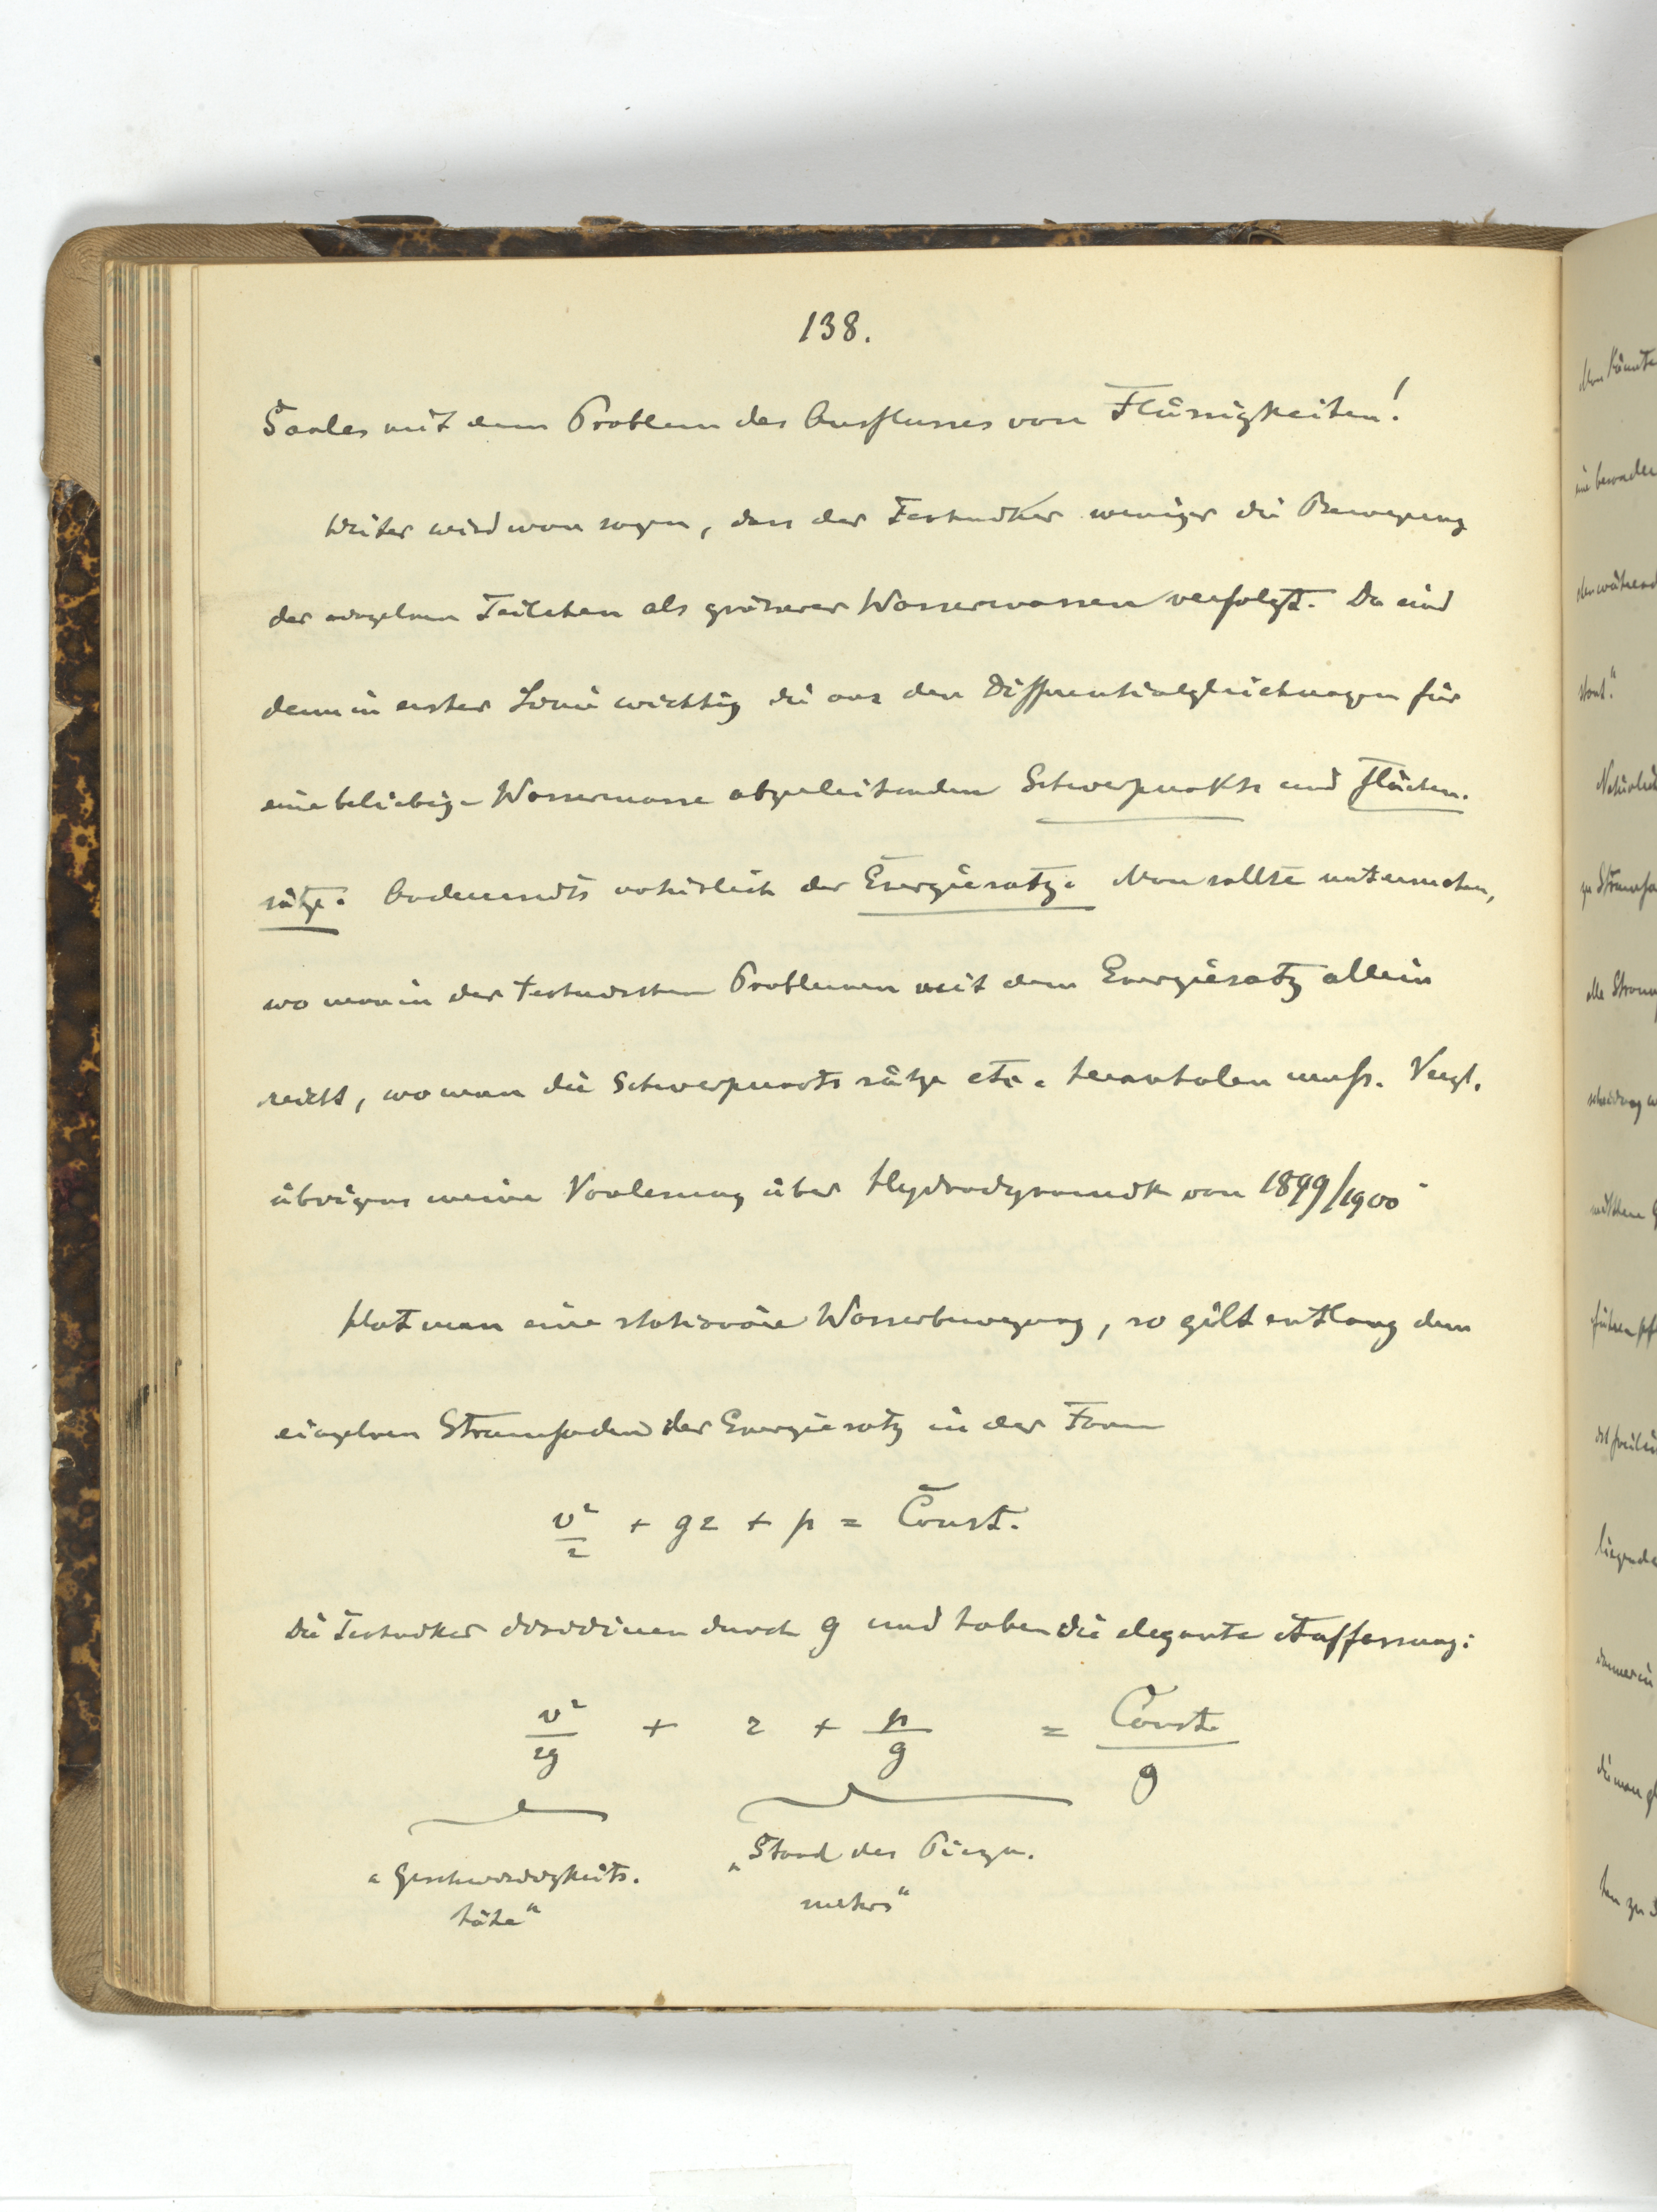 138.
Saales mit dem Problem des Ausflusses von Flüssigkeiten!
Weiter wird man sagen, dass der Techniker weniger die Bewegung
der einzelnen Teilchen als grösserer Wassermassen verfolgt. Da sind
denn in erster Linie wichtig die aus den Differentialgleichungen für
eine beliebige Wassermasse abzuleitenden Schwerpunkts und Flächen-
sätze. Andererseits natürlich der Energiesatz. Man sollte untersuchen,
wo man in der technischen Problemen mit dem Energiesatz allein
reicht, wo man die Schwerpunktssätze etc. heranholen muss. Vergl.
übrigens meine Vorlesung über Hydrodynamik von 1899/1900.
Hat man eine stationäre Wasserbewegung, so gilt entlang dem
einzelnen Stromfaden der Energiesatz in der Form
v²/2 + gz + p = Const.
Die Techniker dividieren durch g und haben die elegante Auffassung:
v²/2g + z + p/g = Const./g
„Geschwindigkeits- „Stand des Piezo-
höhe“ meters“